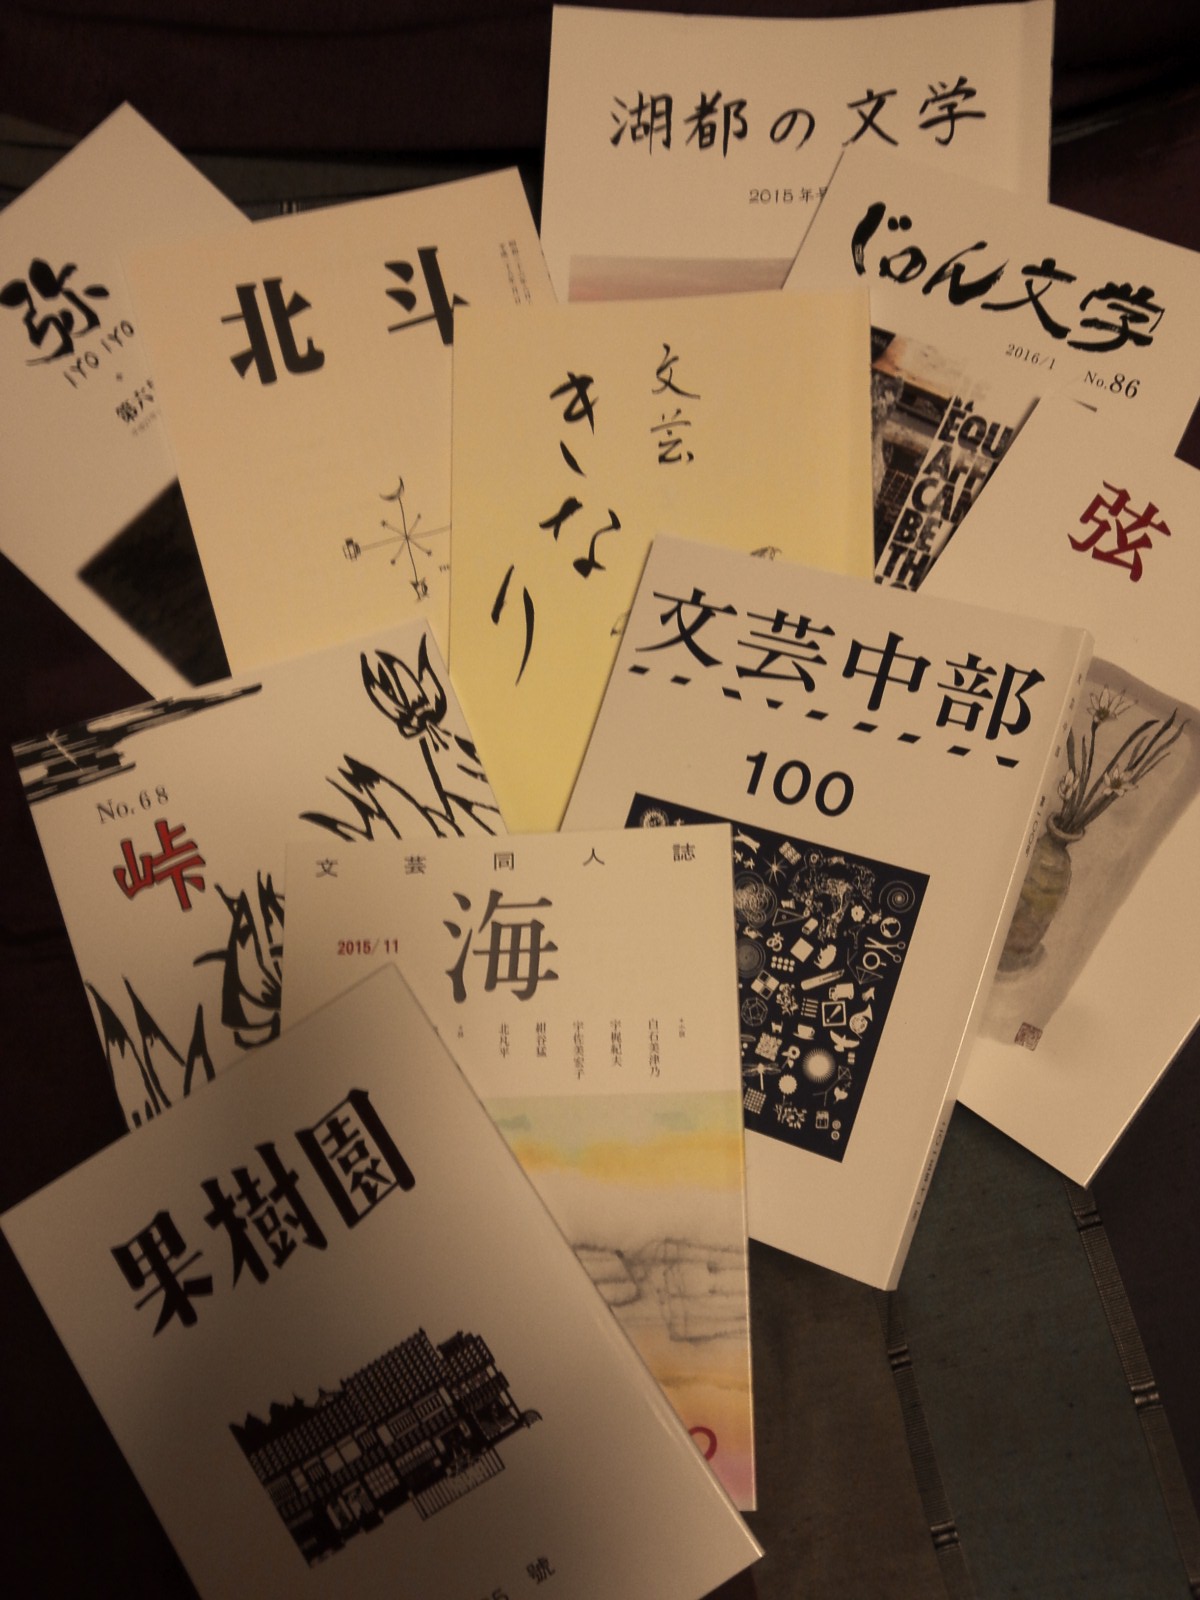 湖都の文学
2015年号
じゅん文学
2016/1 No.86
EQU
AFF
CAN
BE
TH
弥
IYO IYO
第六
北斗
文芸
きなり
弦
文芸中部
100
No.68
峠
文芸同人誌
海
2015/11
白石美津乃
宇梶紀夫
宇佐美宏子
紺谷猛
北凡平
果樹園
號